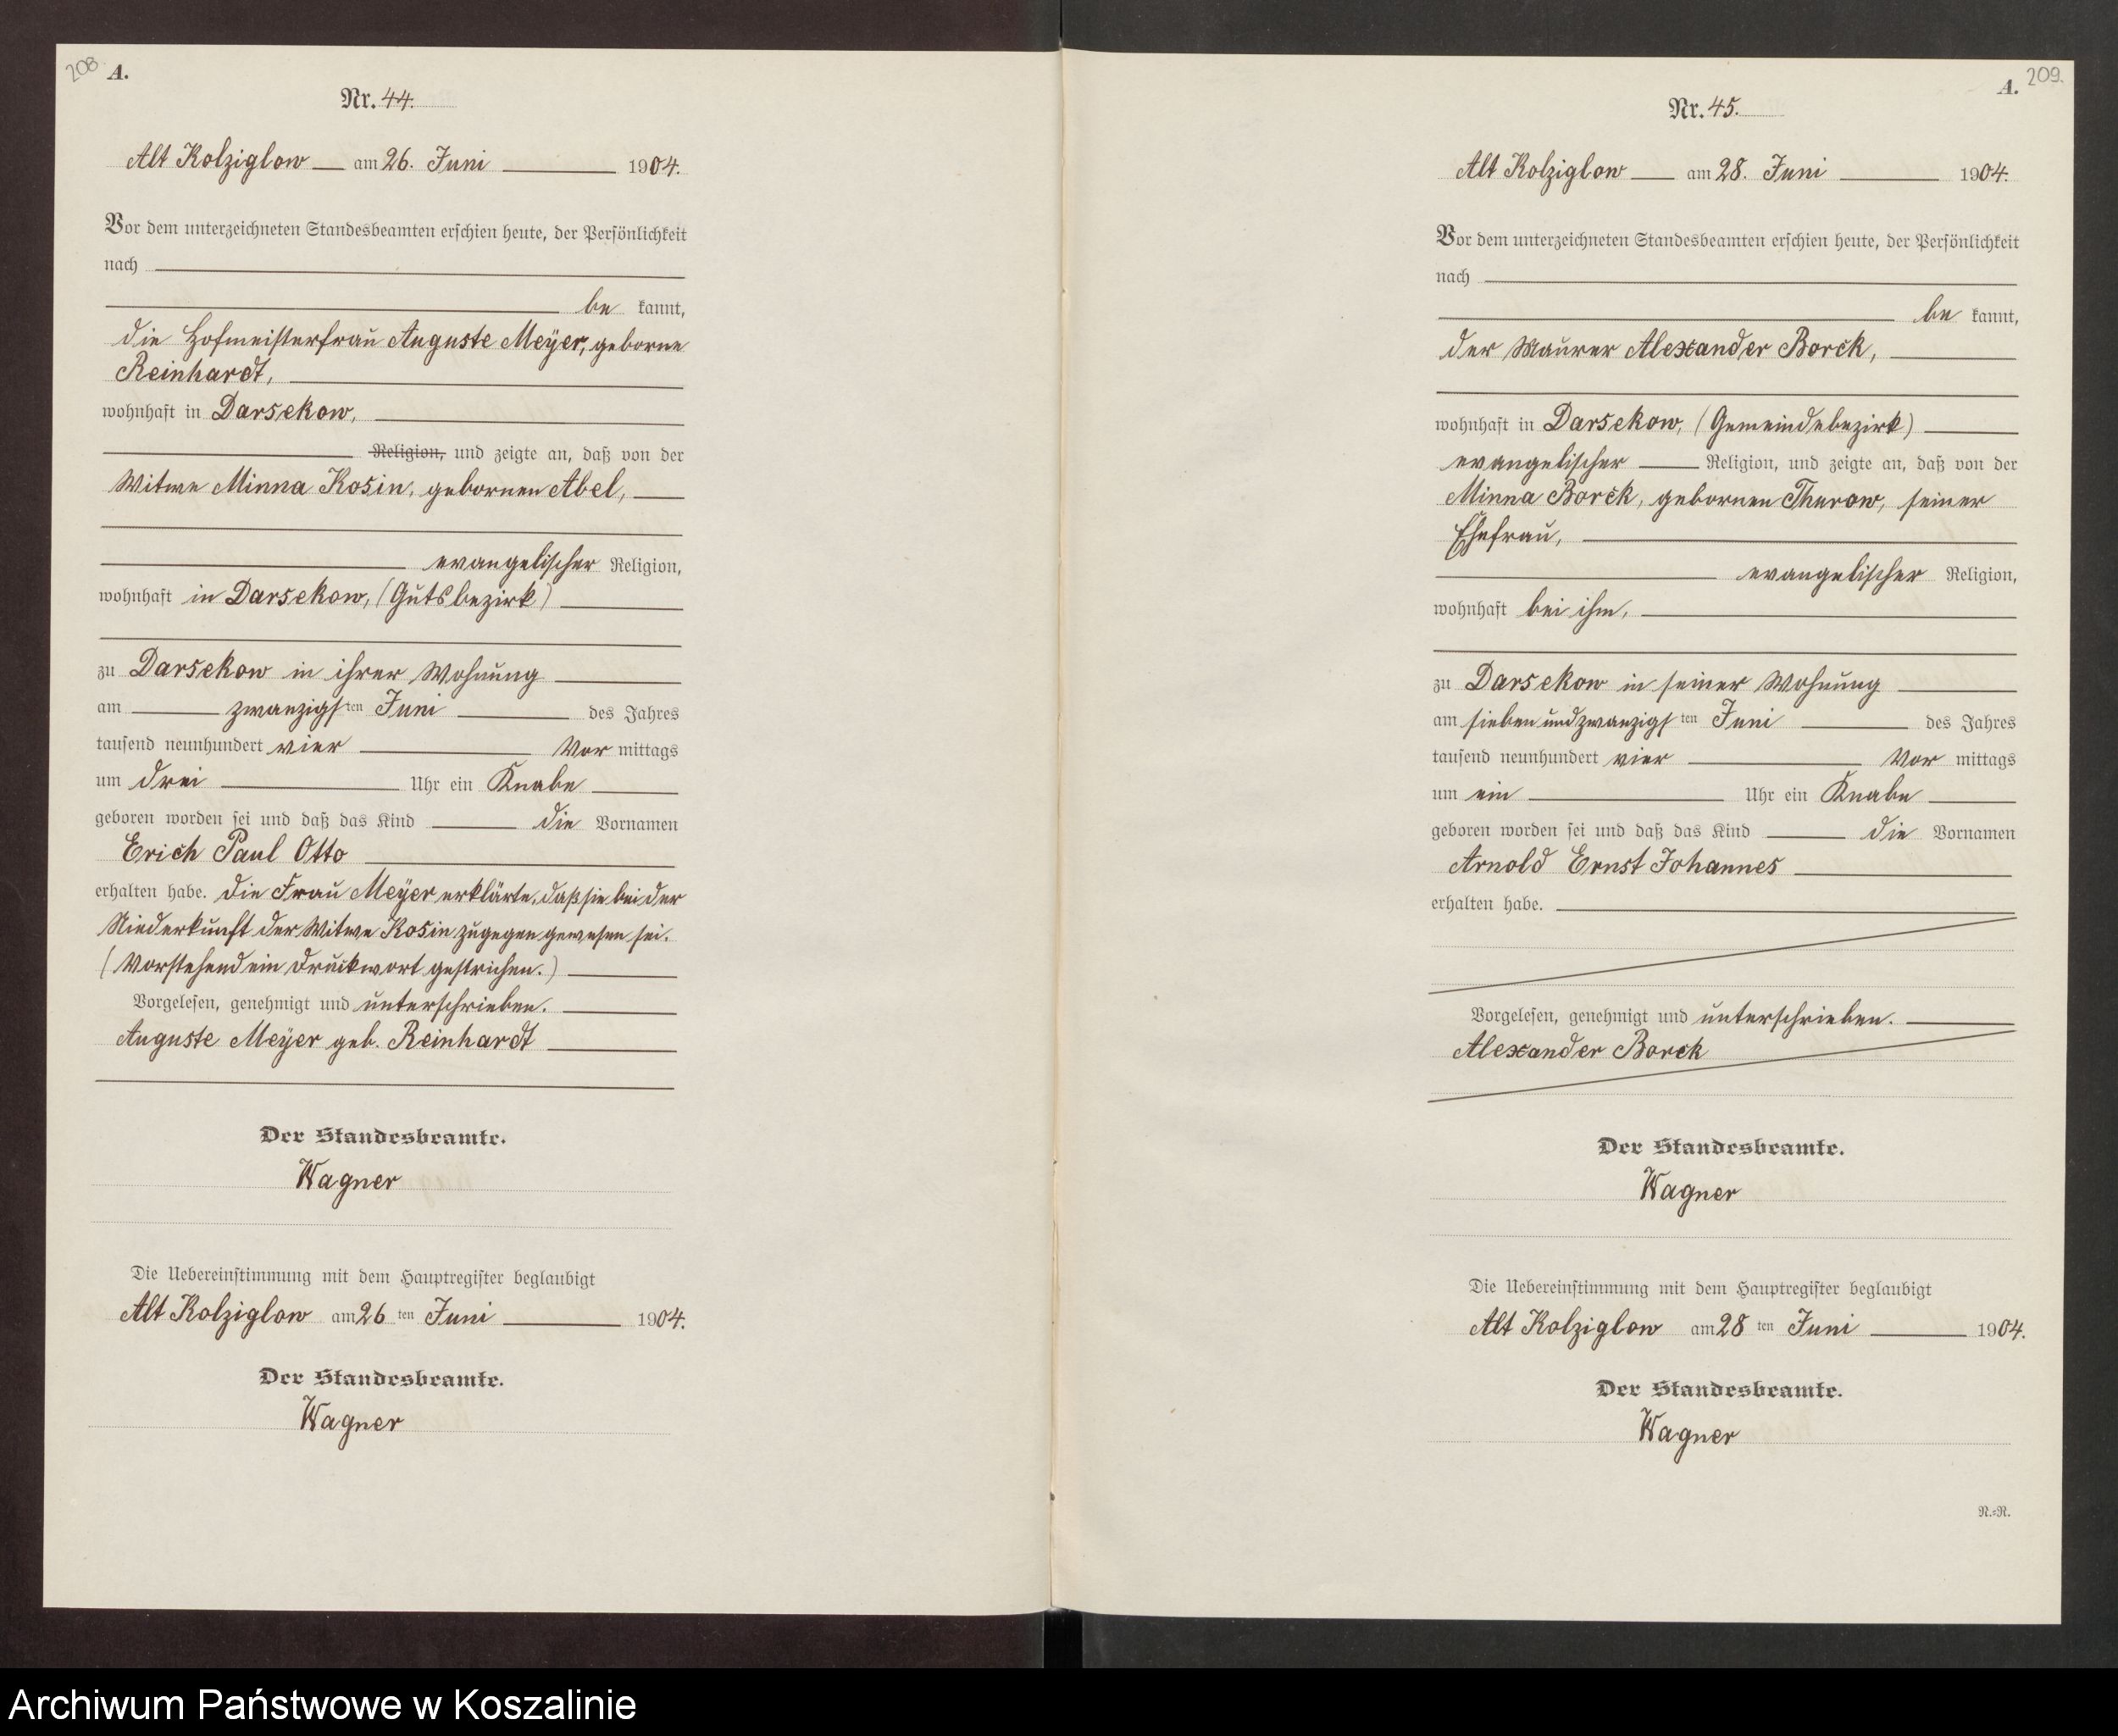 208
A.
Nr. 44.
Alt Kolziglow am 26. Juni 1904.
Vor dem unterzeichneten Standesbeamten erschien heute, der Persönlichkeit
nach
be kannt,
die Hofmeisterfrau Auguste Meÿer, geborne
Reinhardt,
wohnhaft in Darsekow,
Religion, und zeigte an, daß von der
Witwe Minna Kosin, gebornen Abel,
evangelischer Religion,
wohnhaft in Darsekow, (Gutsbezirk)
zu Darsekow in ihrer Wohnung
am zwanzigsten Juni des Jahres
tausend neunhundert vier Vor mittags
um drei Uhr ein Knabe
geboren worden sei und daß das Kind die Vornamen
Erich Paul Otto
erhalten habe. Die Frau Meÿer erklärte, daß sie bei der
Niederkunft der Witwe Kosin zugegen gewesen sei.
(Vorstehend ein Druckwort gestrichen.)
Vorgelesen, genehmigt und unterschrieben.
Auguste Meÿer geb. Reinhardt
Der Standesbeamte.
Wagner
Die Uebereinstimmung mit dem Hauptregister beglaubigt
Alt Kolziglow am 26 ten Juni 1904.
Der Standesbeamte.
Wagner
A. 209.
Nr. 45.
Alt Kolziglow am 28. Juni 1904.
Vor dem unterzeichneten Standesbeamten erschien heute, der Persönlichkeit
nach
be kannt,
der Maurer Alexander Borck,
wohnhaft in Darsekow, (Gemeindebezirk)
evangelischer Religion, und zeigte an, daß von der
Minna Borck, gebornen Thurow, seiner
Ehefrau,
evangelischer Religion,
wohnhaft bei ihm,
zu Darsekow in seiner Wohnung
am siebenundzwanzigsten Juni des Jahres
tausend neunhundert vier Vor mittags
um ein Uhr ein Knabe
geboren worden sei und daß das Kind die Vornamen
Arnold Ernst Johannes
erhalten habe.
Vorgelesen, genehmigt und unterschrieben.
Alexander Borck
Der Standesbeamte.
Wagner
Die Uebereinstimmung mit dem Hauptregister beglaubigt
Alt Kolziglow am 28 ten Juni 1904.
Der Standesbeamte.
Wagner
R.=R.
Archiwum Państwowe w Koszalinie